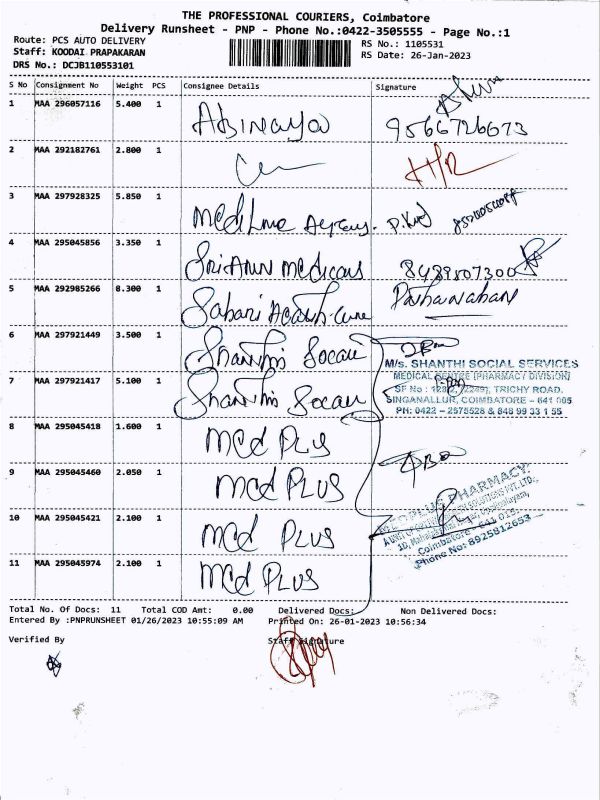 THE PROFESSIONAL COURIERS, Coimbatore
Delivery Runsheet - PNP - Phone No.:0422-3505555 - Page No.:1
Route: PCS AUTO DELIVERY
RS No.: 1105531
Staff: KOODAI PRAPAKARAN
RS Date: 26-Jan-2023
DRS No.: DCJB110553101
S No Consignment No Weight PCS Consignee Details Signature
1 MAA 296057116 5.400 1 Abinaya 9566726673
2 MAA 292182761 2.800 1
3 MAA 297928325 5.850 1 Medi Line
4 MAA 295045856 3.350 1 Sri Arun Medicals 8489507300
5 MAA 292985266 8.300 1 Sabari Health Care
6 MAA 297921449 3.500 1 Shanthi Social
M/s. SHANTHI SOCIAL SERVICES
MEDICAL CENTRE (PHARMACY DIVISION)
7 MAA 297921417 5.100 1 Shanthi Social
SF No : TRICHY ROAD,
SINGANALLUR, COIMBATORE - 641 005
PH: 0422 - 2575528 & 848 99 33 1 55
8 MAA 295045418 1.600 1 Med PLUS
9 MAA 295045460 2.050 1 Med PLUS
MEDPLUS PHARMACY
10 MAA 295045421 2.100 1 Med PLUS
Coimbatore - 641 015.
Phone No: 8925812653
11 MAA 295045974 2.100 1 Med PLUS
Total No. Of Docs: 11 Total COD Amt: 0.00 Delivered Docs: Non Delivered Docs:
Entered By :PNPRUNSHEET 01/26/2023 10:55:09 AM Printed On: 26-01-2023 10:56:34
Verified By Staff Signature